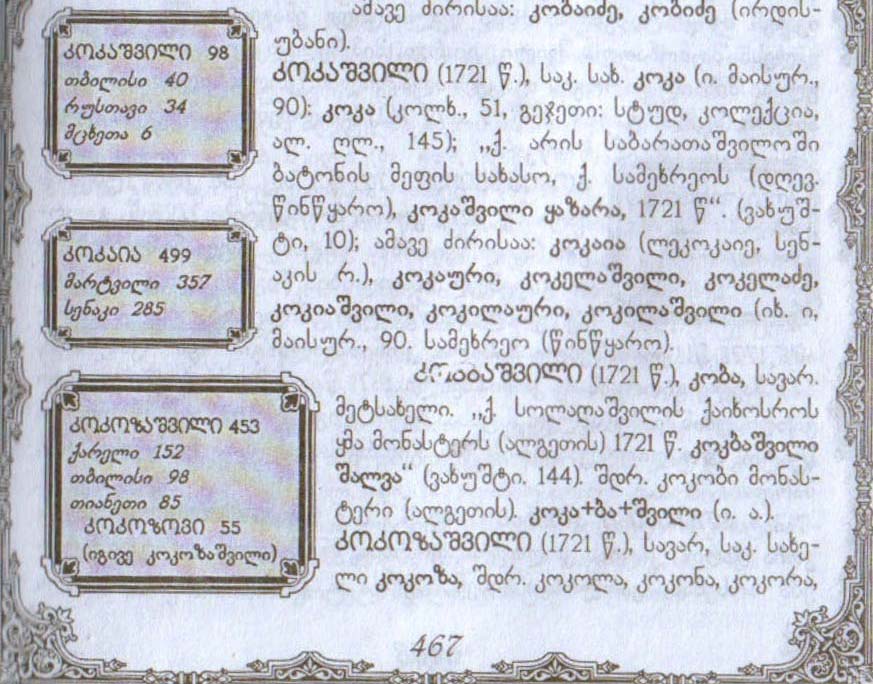 ამავე ძირისაა: კობაიძე, კობიძე (ირდის-
უბანი).
კოკაშვილი 98
თბილისი 40
რუსთავი 34
მცხეთა 6
კოკაშვილი (1721 წ.), საკ. სახ. კოკა (ი. მაისურ.,
90); კოკა (კოლხ., 51, გეჯეთი: სტუდ, კოლექცია,
ალ. ღლ., 145); „ქ. არის საბარათაშვილოში
ბატონის მეფის სახასო, ქ. სამეხრეოს (დღევ.
წინწყარო), კოკაშვილი ყაზარა, 1721 წ“. (ვახუშ-
ტი, 10); ამავე ძირისაა: კოკაია (ლეკოკაიე, სენ-
აკის რ.), კოკაური, კოკელაშვილი, კოკელაძე,
კოკიაშვილი, კოკილაური, კოკილაშვილი (იხ. ი,
მაისურ., 90. სამეხრეო (წინწყარო).
კოკაია 499
მარტვილი 357
სენაკი 285
(1721 წ.), კობა, სავარ.
მეტსახელი. „ქ. სოლაღაშვილის ქაიხოსროს
ყმა მონასტერს (ალგეთის) 1721 წ. კოკბაშვილი
შალვა“ (ვახუშტი. 144). შდრ. კოკობი მონას-
ტერი (ალგეთის). კოკა+ბა+შვილი (ი. ა.).
კოკოზაშვილი (1721 წ.), სავარ, საკ. სახე-
ლი კოკოზა, შდრ. კოკოლა, კოკონა, კოკორა,
კოკოზაშვილი 453
ქარელი 152
თბილისი 98
თიანეთი 85
კოკოზოვი 55
(იგივე კოკოზაშვილი)
467